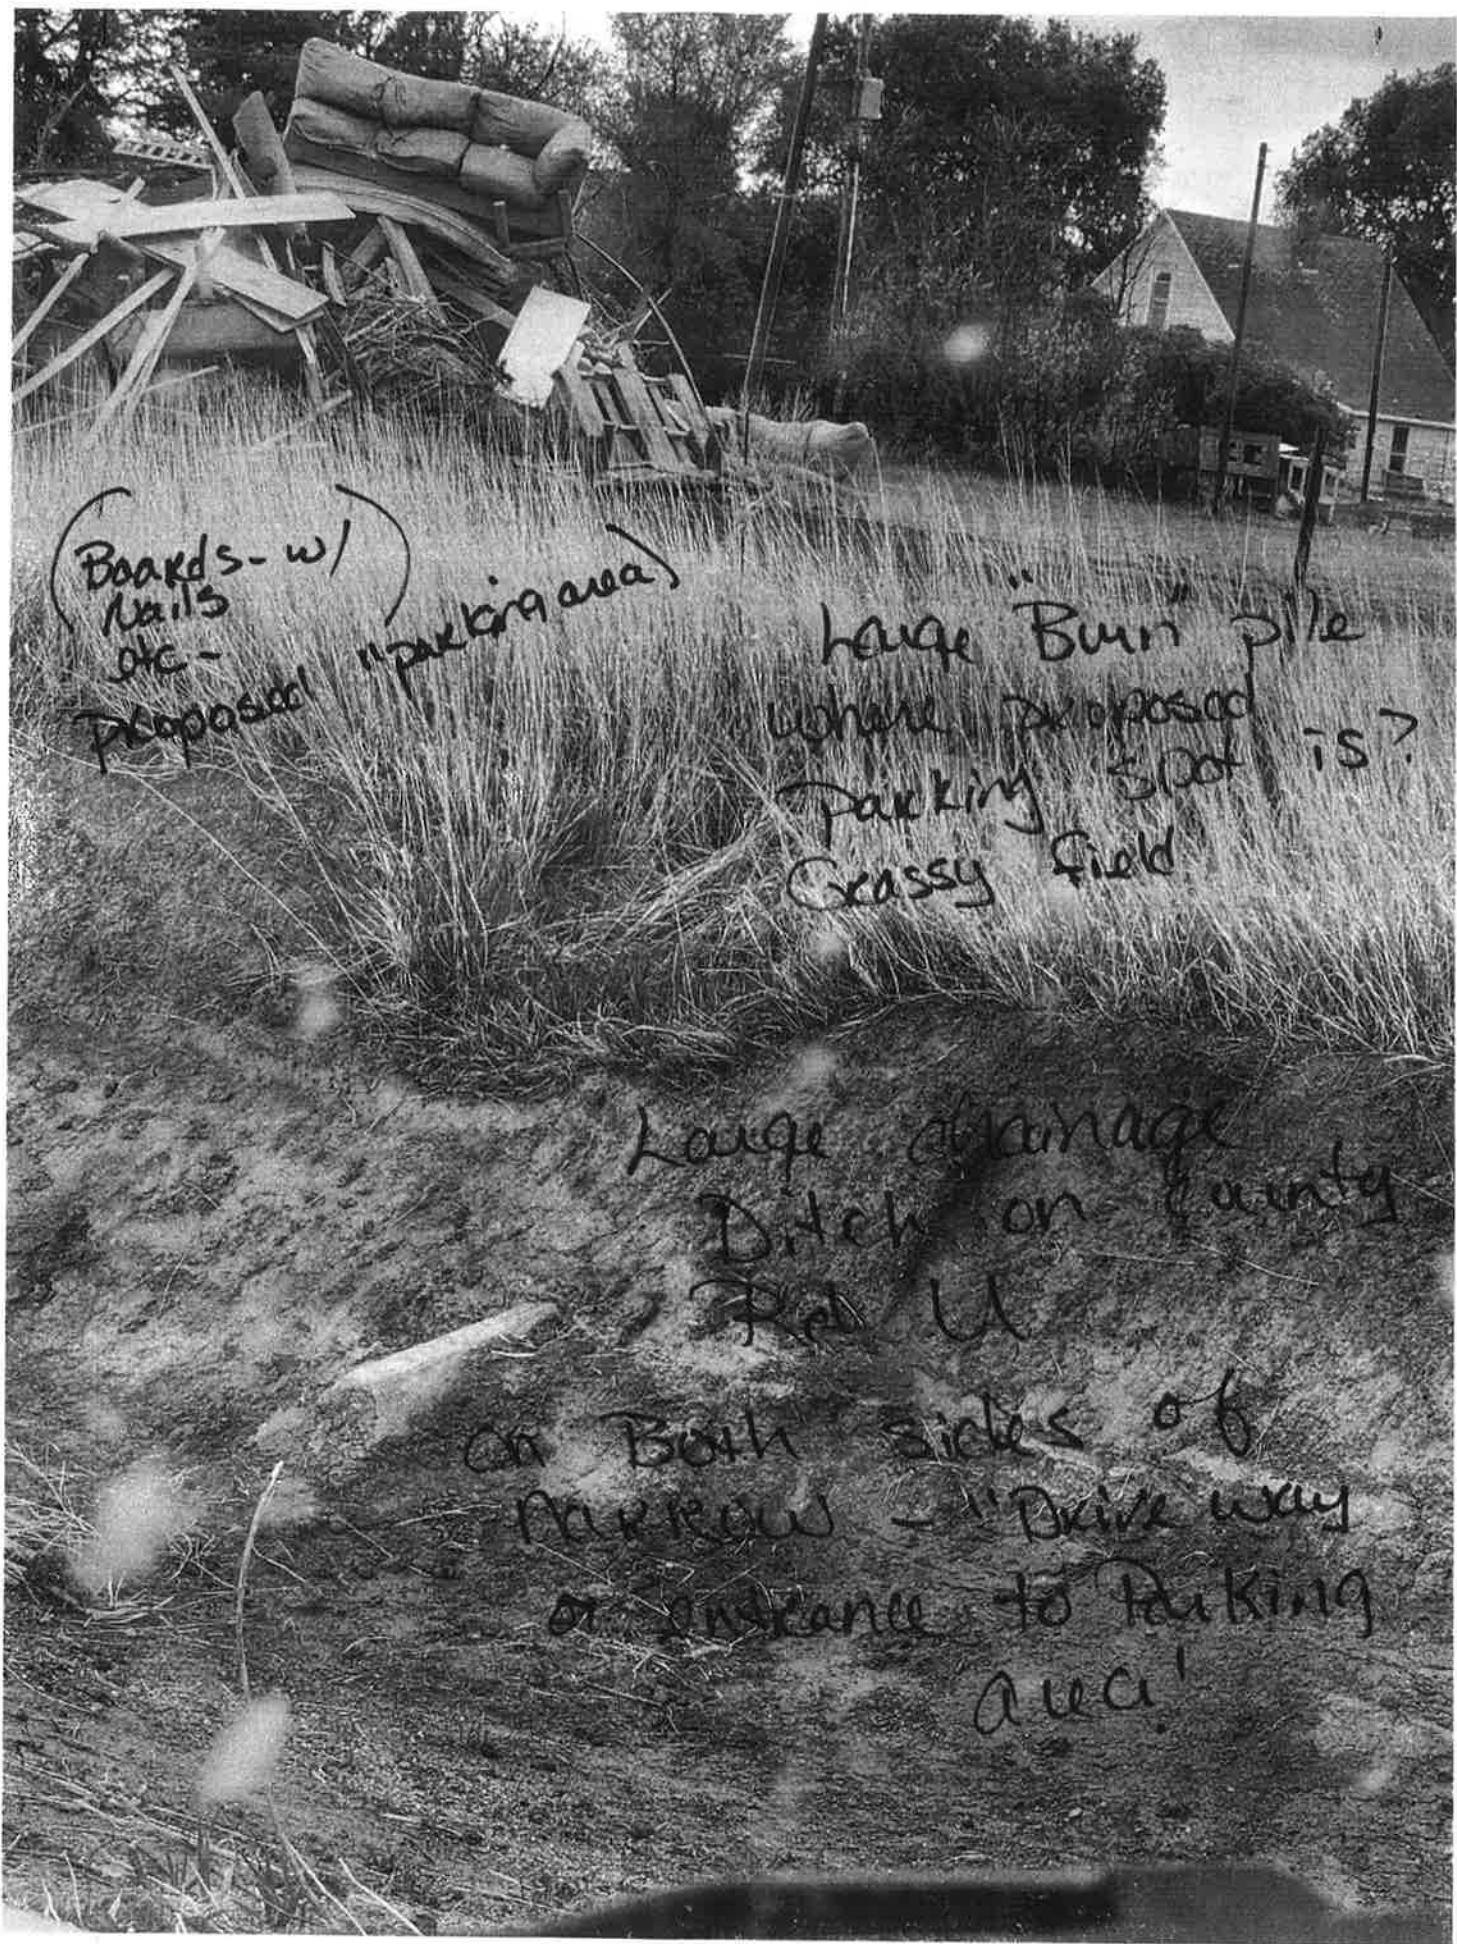 (Boards - w/
Nails
etc -
proposed "parking area)
Large "Burn" pile
where proposed
parking spot is?
Grassy field
Large drainage
Ditch on County
Rd. U
on Both sides of
narrow - "Drive way
or entrance to Parking
area!